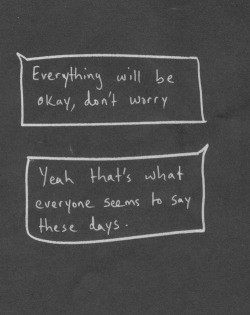 Everything will be
okay, don't worry
Yeah that's what
everyone seems to say
these days.